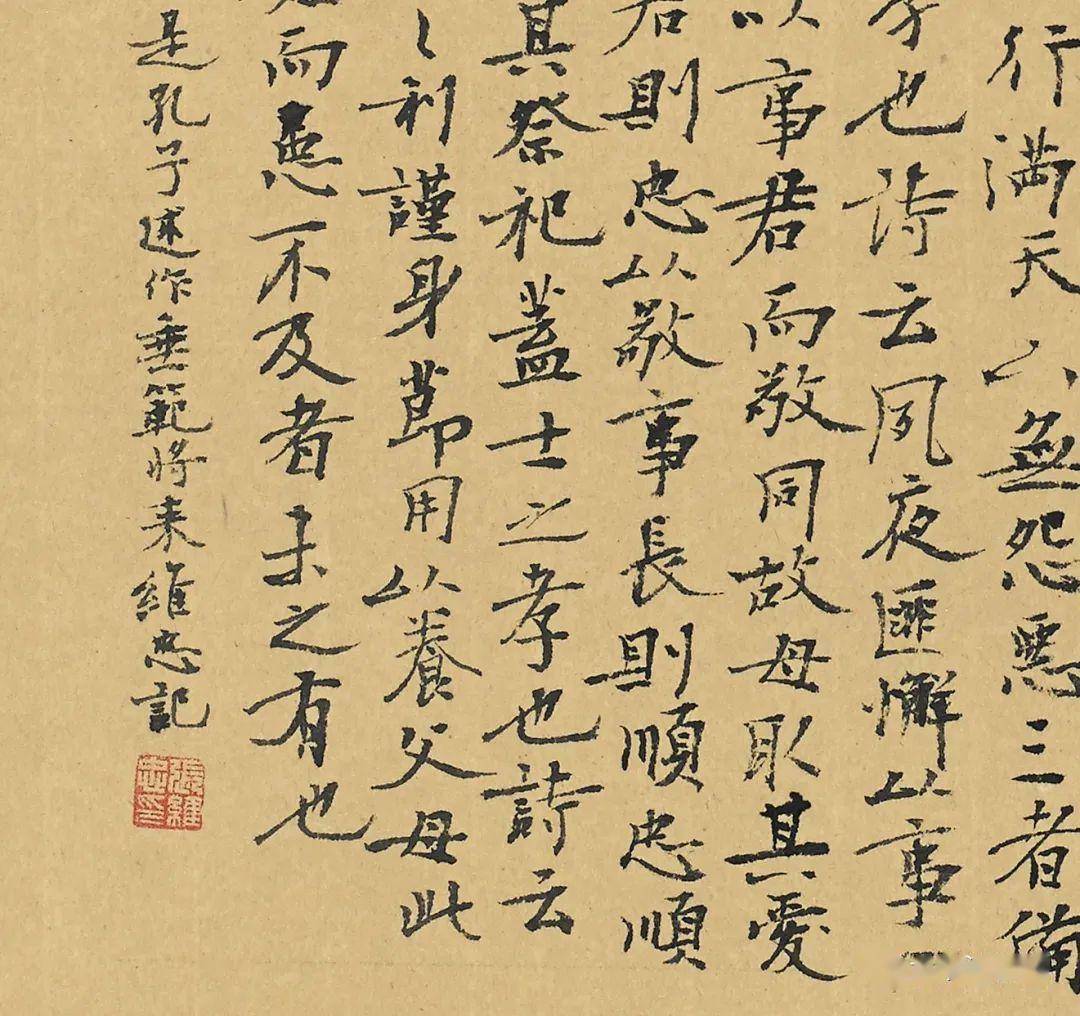 行满天下無怨恶三者備
孝也诗云夙夜匪懈以事一
以事君而敬同故母取其爱
君則忠以敬事長則順忠順
其祭祀蓋士之孝也詩云
之利謹身節用以養父母此
而患不及者未之有也
是孔子述作垂範将来維忠記
張維忠印